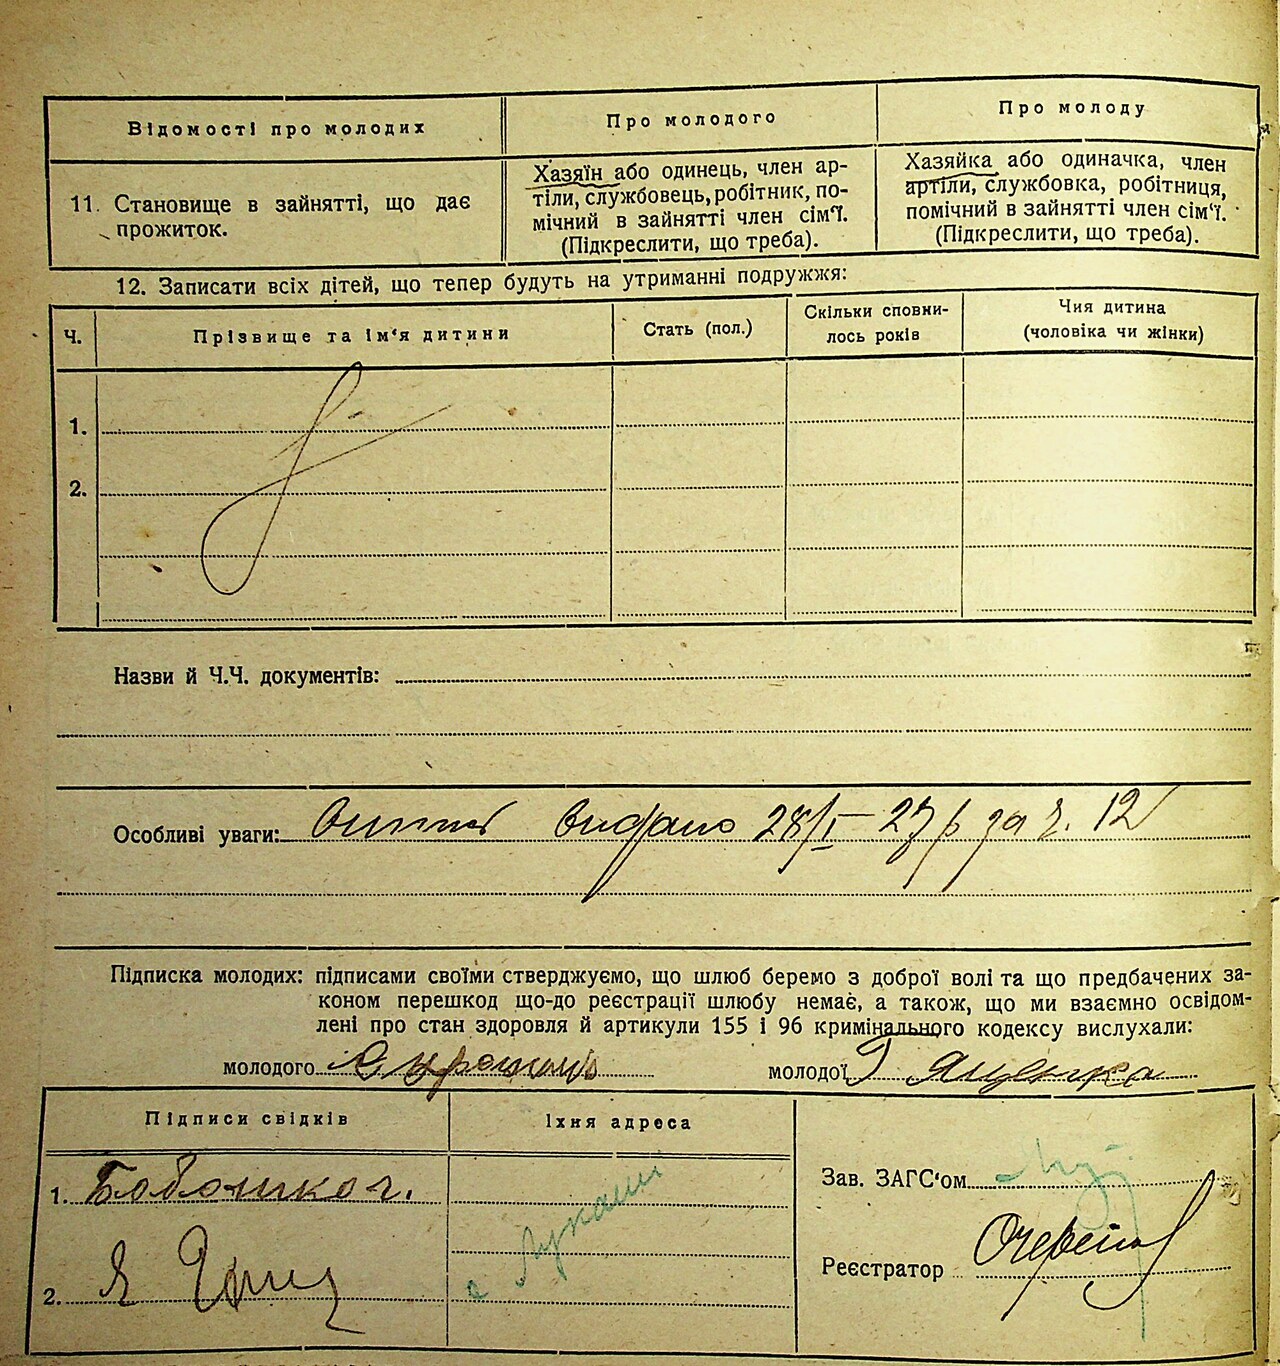 Відомості про молодих
Про молодого
Про молоду
11. Становище в зайнятті, що дає
прожиток.
Хазяїн або одинець, член ар-
тіли, службовець, робітник, по-
мічний в зайнятті член сім‘ї.
(Підкреслити, що треба).
Хазяйка або одиначка, член
артіли, службовка, робітниця,
помічний в зайнятті член сім‘ї.
(Підкреслити, що треба).
12. Записати всіх дітей, що тепер будуть на утриманні подружжя:
Ч.
Прізвище та ім‘я дитини
Стать (пол.)
Скільки сповни-
лось років
Чия дитина
(чоловіка чи жінки)
1.
2.
Назви й Ч.Ч. документів:
Особливі уваги: видано 28/I–27 р за ч. 12
Підписка молодих: підписами своїми стверджуємо, що шлюб беремо з доброї волі та що предбачених за-
коном перешкод що-до реєстрації шлюбу немає, а також, що ми взаємно освідом-
лені про стан здоровля й артикули 155 і 96 кримінального кодексу вислухали:
молодого
молодої Г Яценко
Підписи свідків
Їхня адреса
1.
2. Я
с Лукаши
Зав. ЗАГС‘ом
Реєстратор